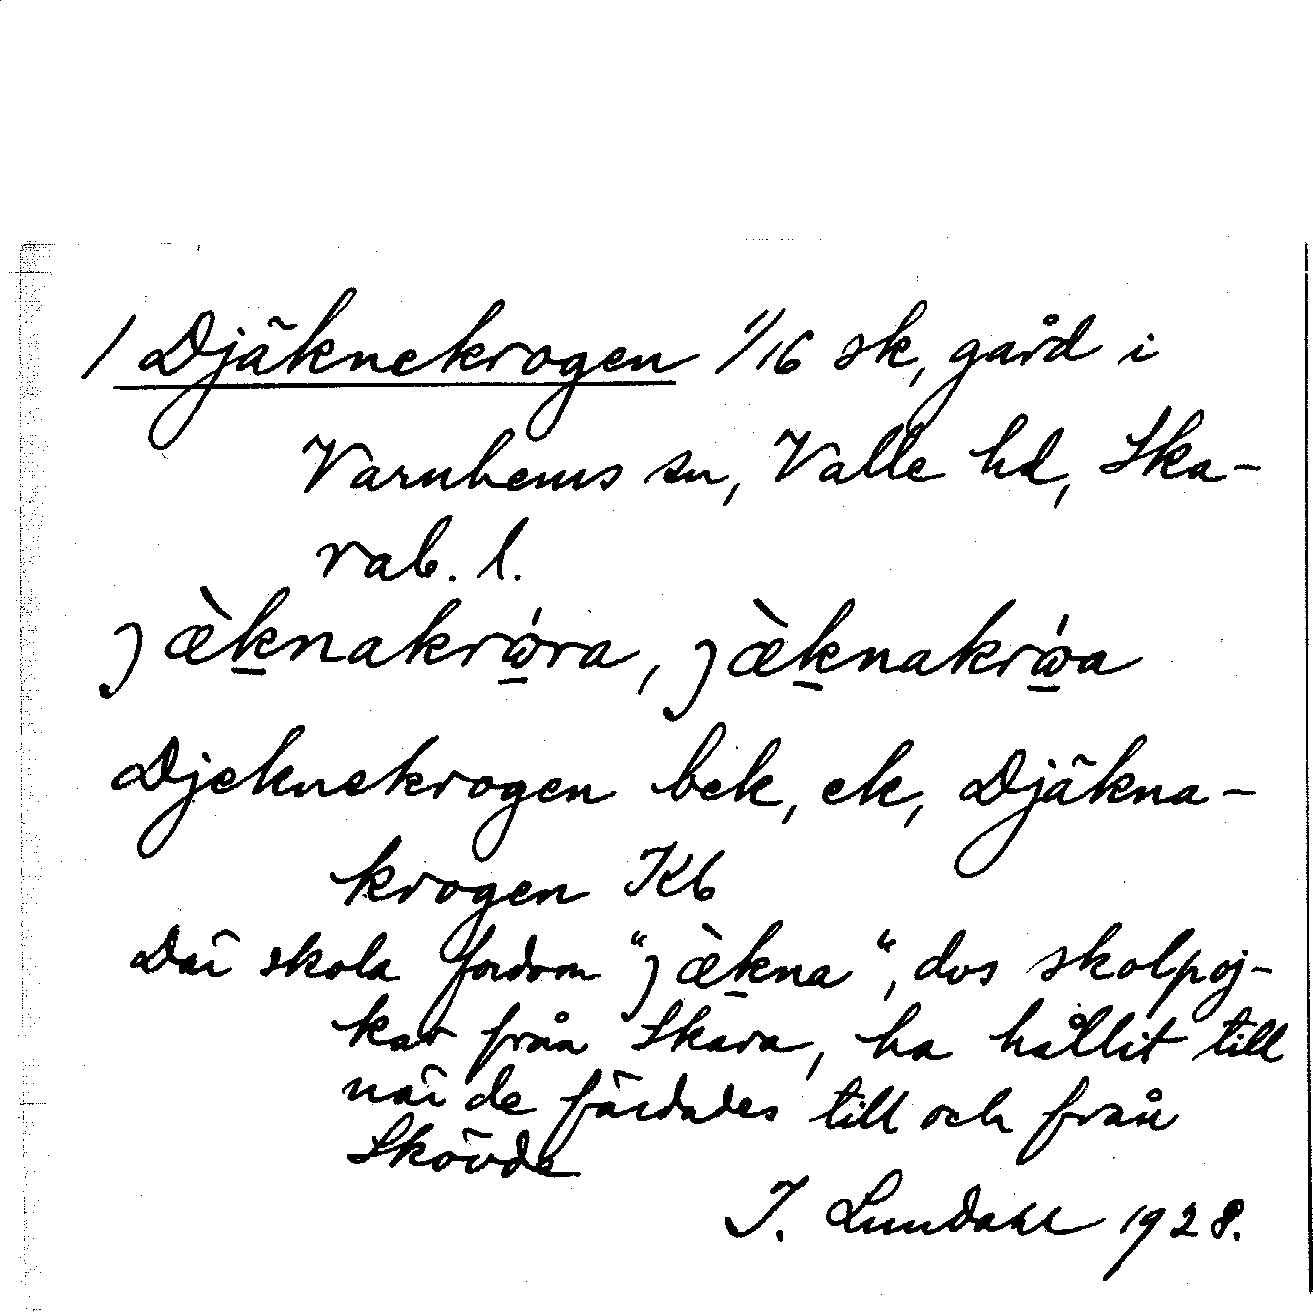 / Djäknekrogen 1/16 sk, gård i
Varnhems sn, Valle hd, Ska-
rab. l.
jæ̀k̲nakrώ̲ra, jæ̀k̲nakrώ̲a
Djeknekrogen bek, ek, Djäkna-
krogen Kb
Där skola fordom "jæ̀k̲na", dvs skolpoj-
kar från Skara, ha hållit till
när de färdades till och från
Skövde
I. Lundahl 1928.